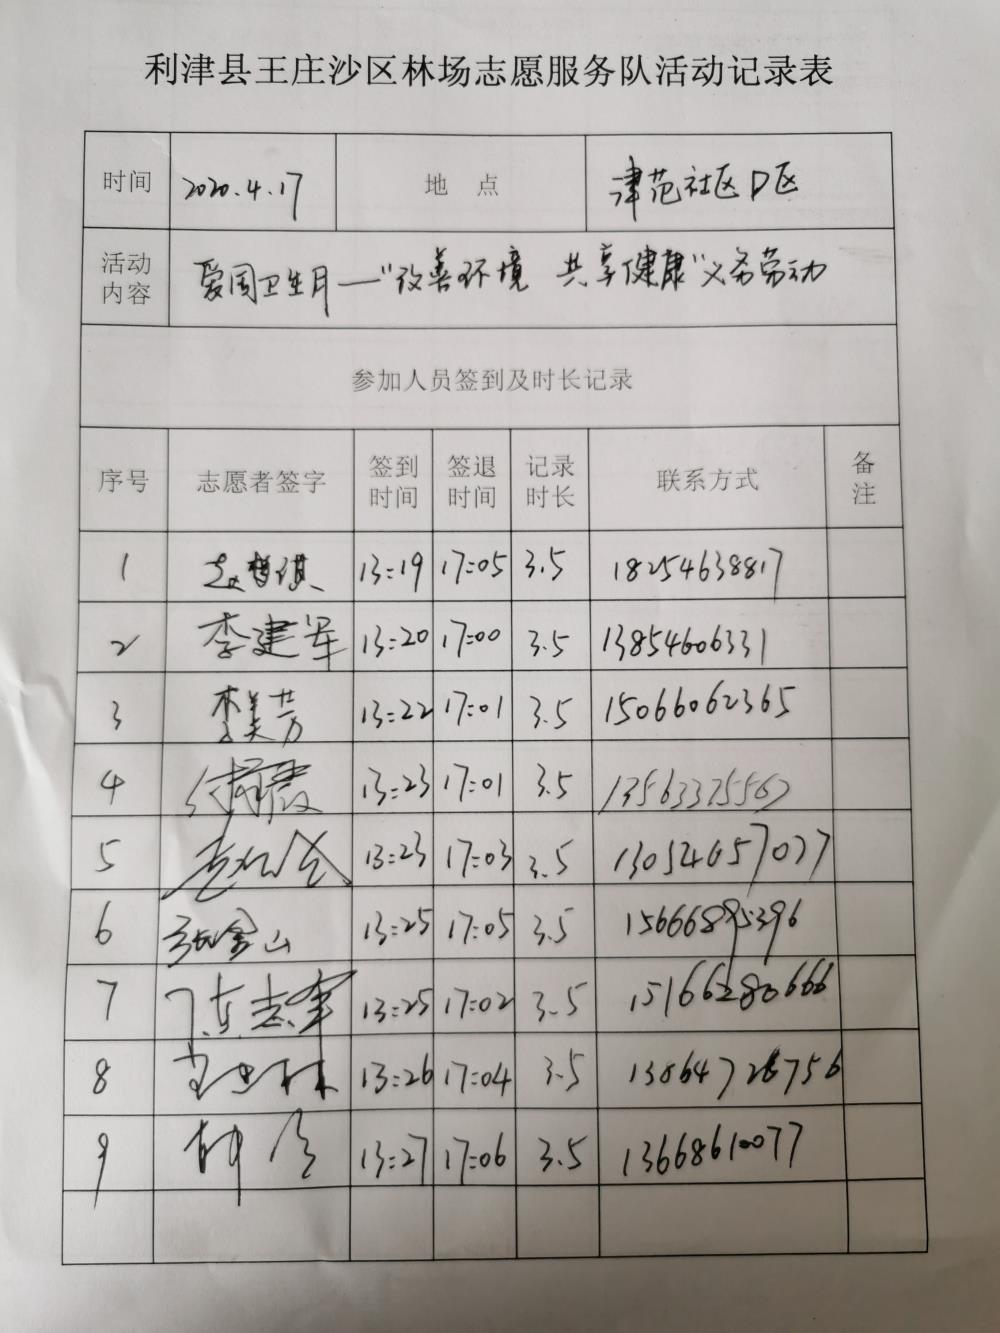 利津县王庄沙区林场志愿服务队活动记录表
时间 2020.4.17 地 点 津苑社区D区
活动内容 爱国卫生月—"改善环境 共享健康"义务劳动
参加人员签到及时长记录
序号 志愿者签字 签到时间 签退时间 记录时长 联系方式 备注
1 13:19 17:05 3.5 18254638817
2 李建军 13:20 17:00 3.5 13854606331
3 李美芳 13:22 17:01 3.5 15066062365
4 13:23 17:01 3.5
5 13:23 17:03 3.5 13054657077
6 张金山 13:25 17:05 3.5 15666895396
7 陈志军 13:25 17:02 3.5 15166280666
8 13:26 17:04 3.5
9 13:27 17:06 3.5 13668610077